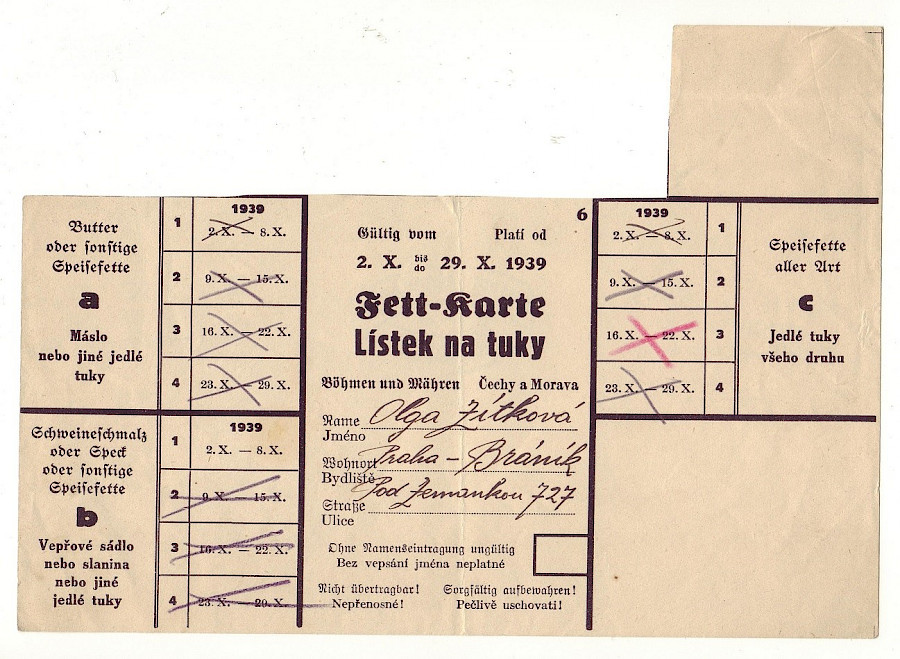 Butter
oder sonstige
Speisefette
a
Máslo
nebo jiné jedlé
tuky
1939
1 2. X. — 8. X.
2 9. X. — 15. X.
3 16. X. — 22. X.
4 23. X. — 29. X.
Schweineschmalz
oder Speck
oder sonstige
Speisefette
b
Vepřové sádlo
nebo slanina
nebo jiné
jedlé tuky
1939
1 2. X. — 8. X.
2 9. X. — 15. X.
3 16. X. — 22. X.
4 23. X. — 29. X.
6
Gültig vom Platí od
2. X. bis do 29. X. 1939
Fett-Karte
Lístek na tuky
Böhmen und Mähren Čechy a Morava
Name Olga Zítková
Jméno
Wohnort Praha - Bráník
Bydliště
Straße Pod Zemankou 727
Ulice
Ohne Namenseintragung ungültig
Bez vepsání jména neplatné
Nicht übertragbar! Sorgfältig aufbewahren!
Nepřenosné! Pečlivě uschovati!
1939
2. X. — 8. X. 1
9. X. — 15. X. 2
16. X. — 22. X. 3
23. X. — 29. X. 4
Speisefette
aller Art
c
Jedlé tuky
všeho druhu